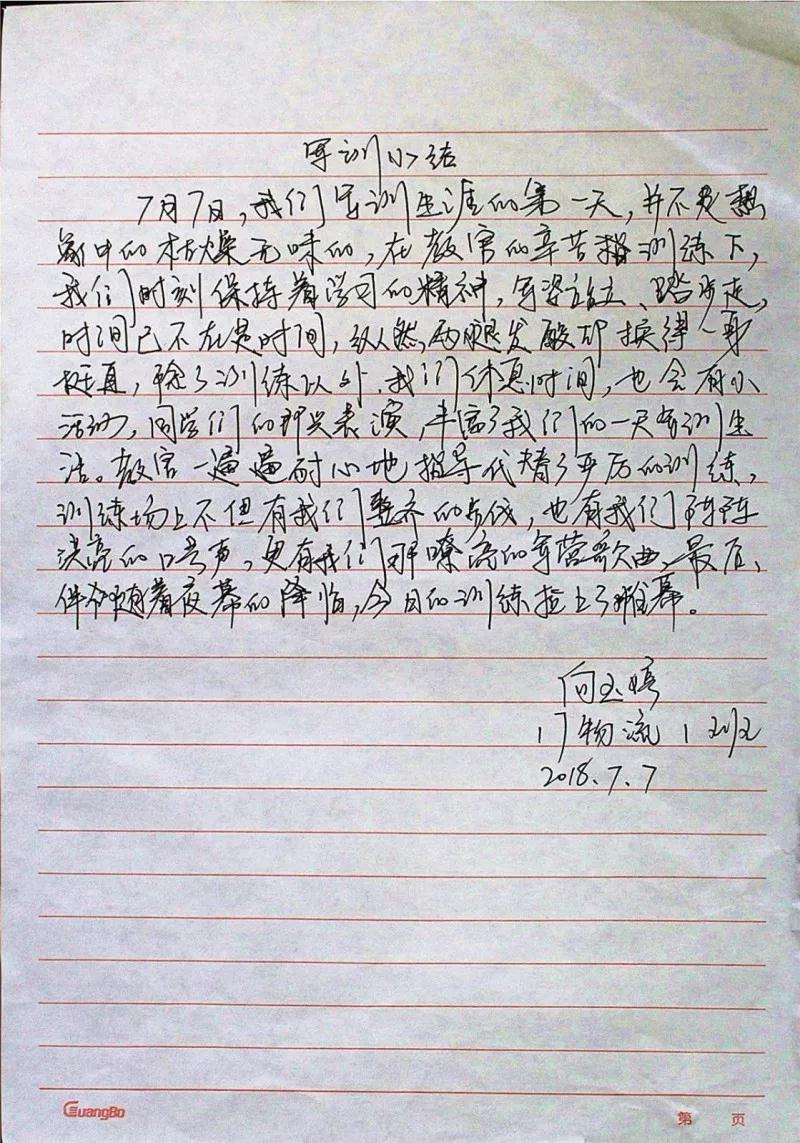 军训小结
7月7日，我们军训生涯的第一天，并不是想
象中的枯燥无味的，在教官的辛苦训练下，
我们时刻保持着学习的精神，军姿站立、踏步走，
时间已不在是时间，纵然两腿发酸却换得一身
挺直，除了训练以外，我们休息时间，也会有小
活动，同学们的即兴表演，丰富了我们的一天军训生
活。教官一遍遍耐心地指导代替了严厉的训练，
训练场上不但有我们整齐的步伐，也有我们阵阵
洪亮的口号声，更有我们那嘹亮的军营歌曲，最后，
伴随着夜幕的降临，今日的训练拉上了帷幕。
向玉婷
17物流1班
2018.7.7
GuangBo
第 页